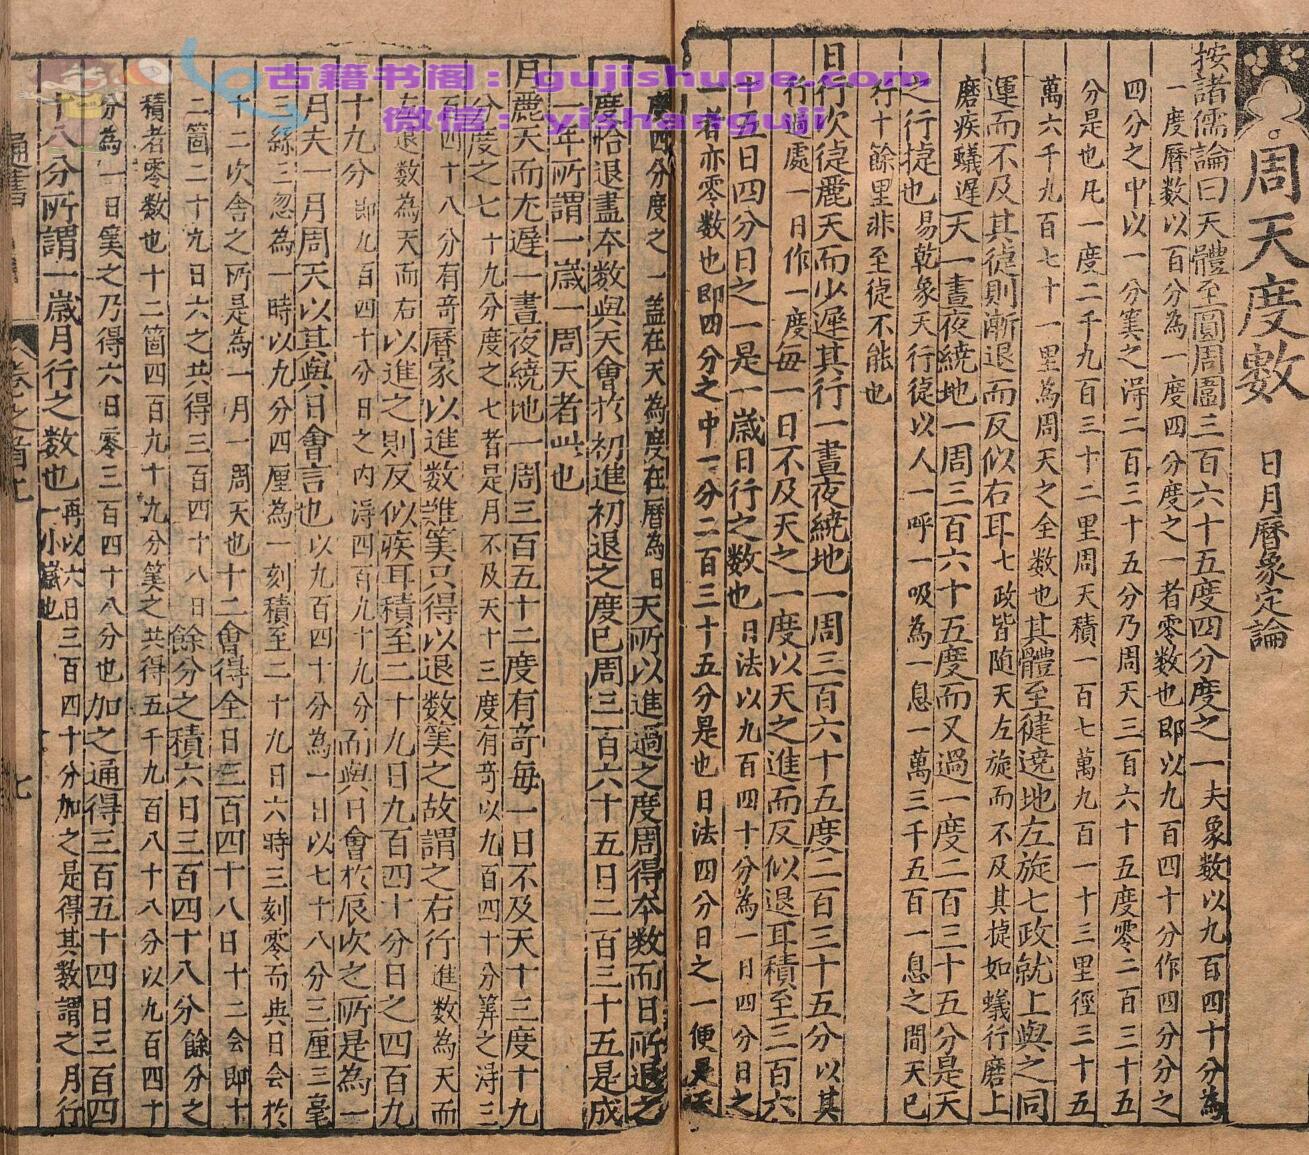 周天度數 日月曆象定論
按諸儒論曰天體至圓周圍三百六十五度四分度之一夫象數以九百四十分為
一度曆數以百分為一度四分度之一者零數也即以九百四十分作四分分之
四分之中以一分筭之得二百三十五分乃周天三百六十五度零二百三十五
分是也凡一度二千九百三十二里周天積一百七萬九百一十三里徑三十五
萬六千九百七十一里為周天之全數也其體至健遶地左旋七政就上與之同
運而不及其徤則漸退而反似右耳七政皆随天左旋而不及其捷如蟻行磨上
磨疾蟻遲天一晝夜繞地一周三百六十五度而又過一度二百三十五分是天
之行捷也易乾象天行徤以人一呼一吸為一息一萬三千五百一息之間天已
行十餘里非至徤不能也
日行次徤麗天而少遲其行一晝夜繞地一周三百六十五度二百三十五分以其
行過處一日作一度每一日不及天之一度以天之進而反似退耳積至三百六
十五日四分日之一是一歲日行之数也日法以九百四十分為一日四分日之
一者亦零数也即四分之中一分二百三十五分是也日法四分日之一便是天
度四分度之一盖在天為度在曆為日天所以進過之度周得本数而日所退之
度恰退盡本数與天會於初進初退之度已周三百六十五日二百三十五是成
一年所謂一歲一周天者此也
月麗天而尤遲一晝夜繞地一周三百五十二度有奇每一日不及天十三度十九
分度之七十九分度之七者是月不及天十三度有奇以九百四十分筭之得三
百四十八分有奇曆家以進数難筭只得以退数筭之故謂之右行進数為天而
左退数為天而右以進之則反似疾耳積至二十九日九百四十分日之四百九
十九分即九百四十分日之内得四百九十九分而與日會於辰次之所是為一
月夫一月周天以其與日會言也以九百四十分為一日以七十八分三厘三毫
三絲三忽為一時以九分四厘為一刻積至二十九日六時三刻零而與日会於
十二次舍之所是為一月一周天也十二會得全日三百四十八日十二会即十
二箇二十九日六之共得三百四十八日餘分之積六日三百四十八分餘分之
積者零数也十二箇四百九十九分筭之共得五千九百八十八分以九百四十
分為一日筭之乃得六日零三百四十八分也加之通得三百五十四日三百四
十八分所謂一歲月行之数也再以六日三百四十分加之是得其数謂之月行
一小歲也
通書
卷之首
七
古籍书阁：gujishuge.com
微信：yishanguji